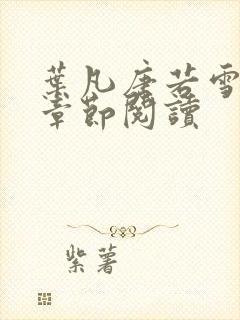 葉凡唐若雪
章節閱讀
紫薯